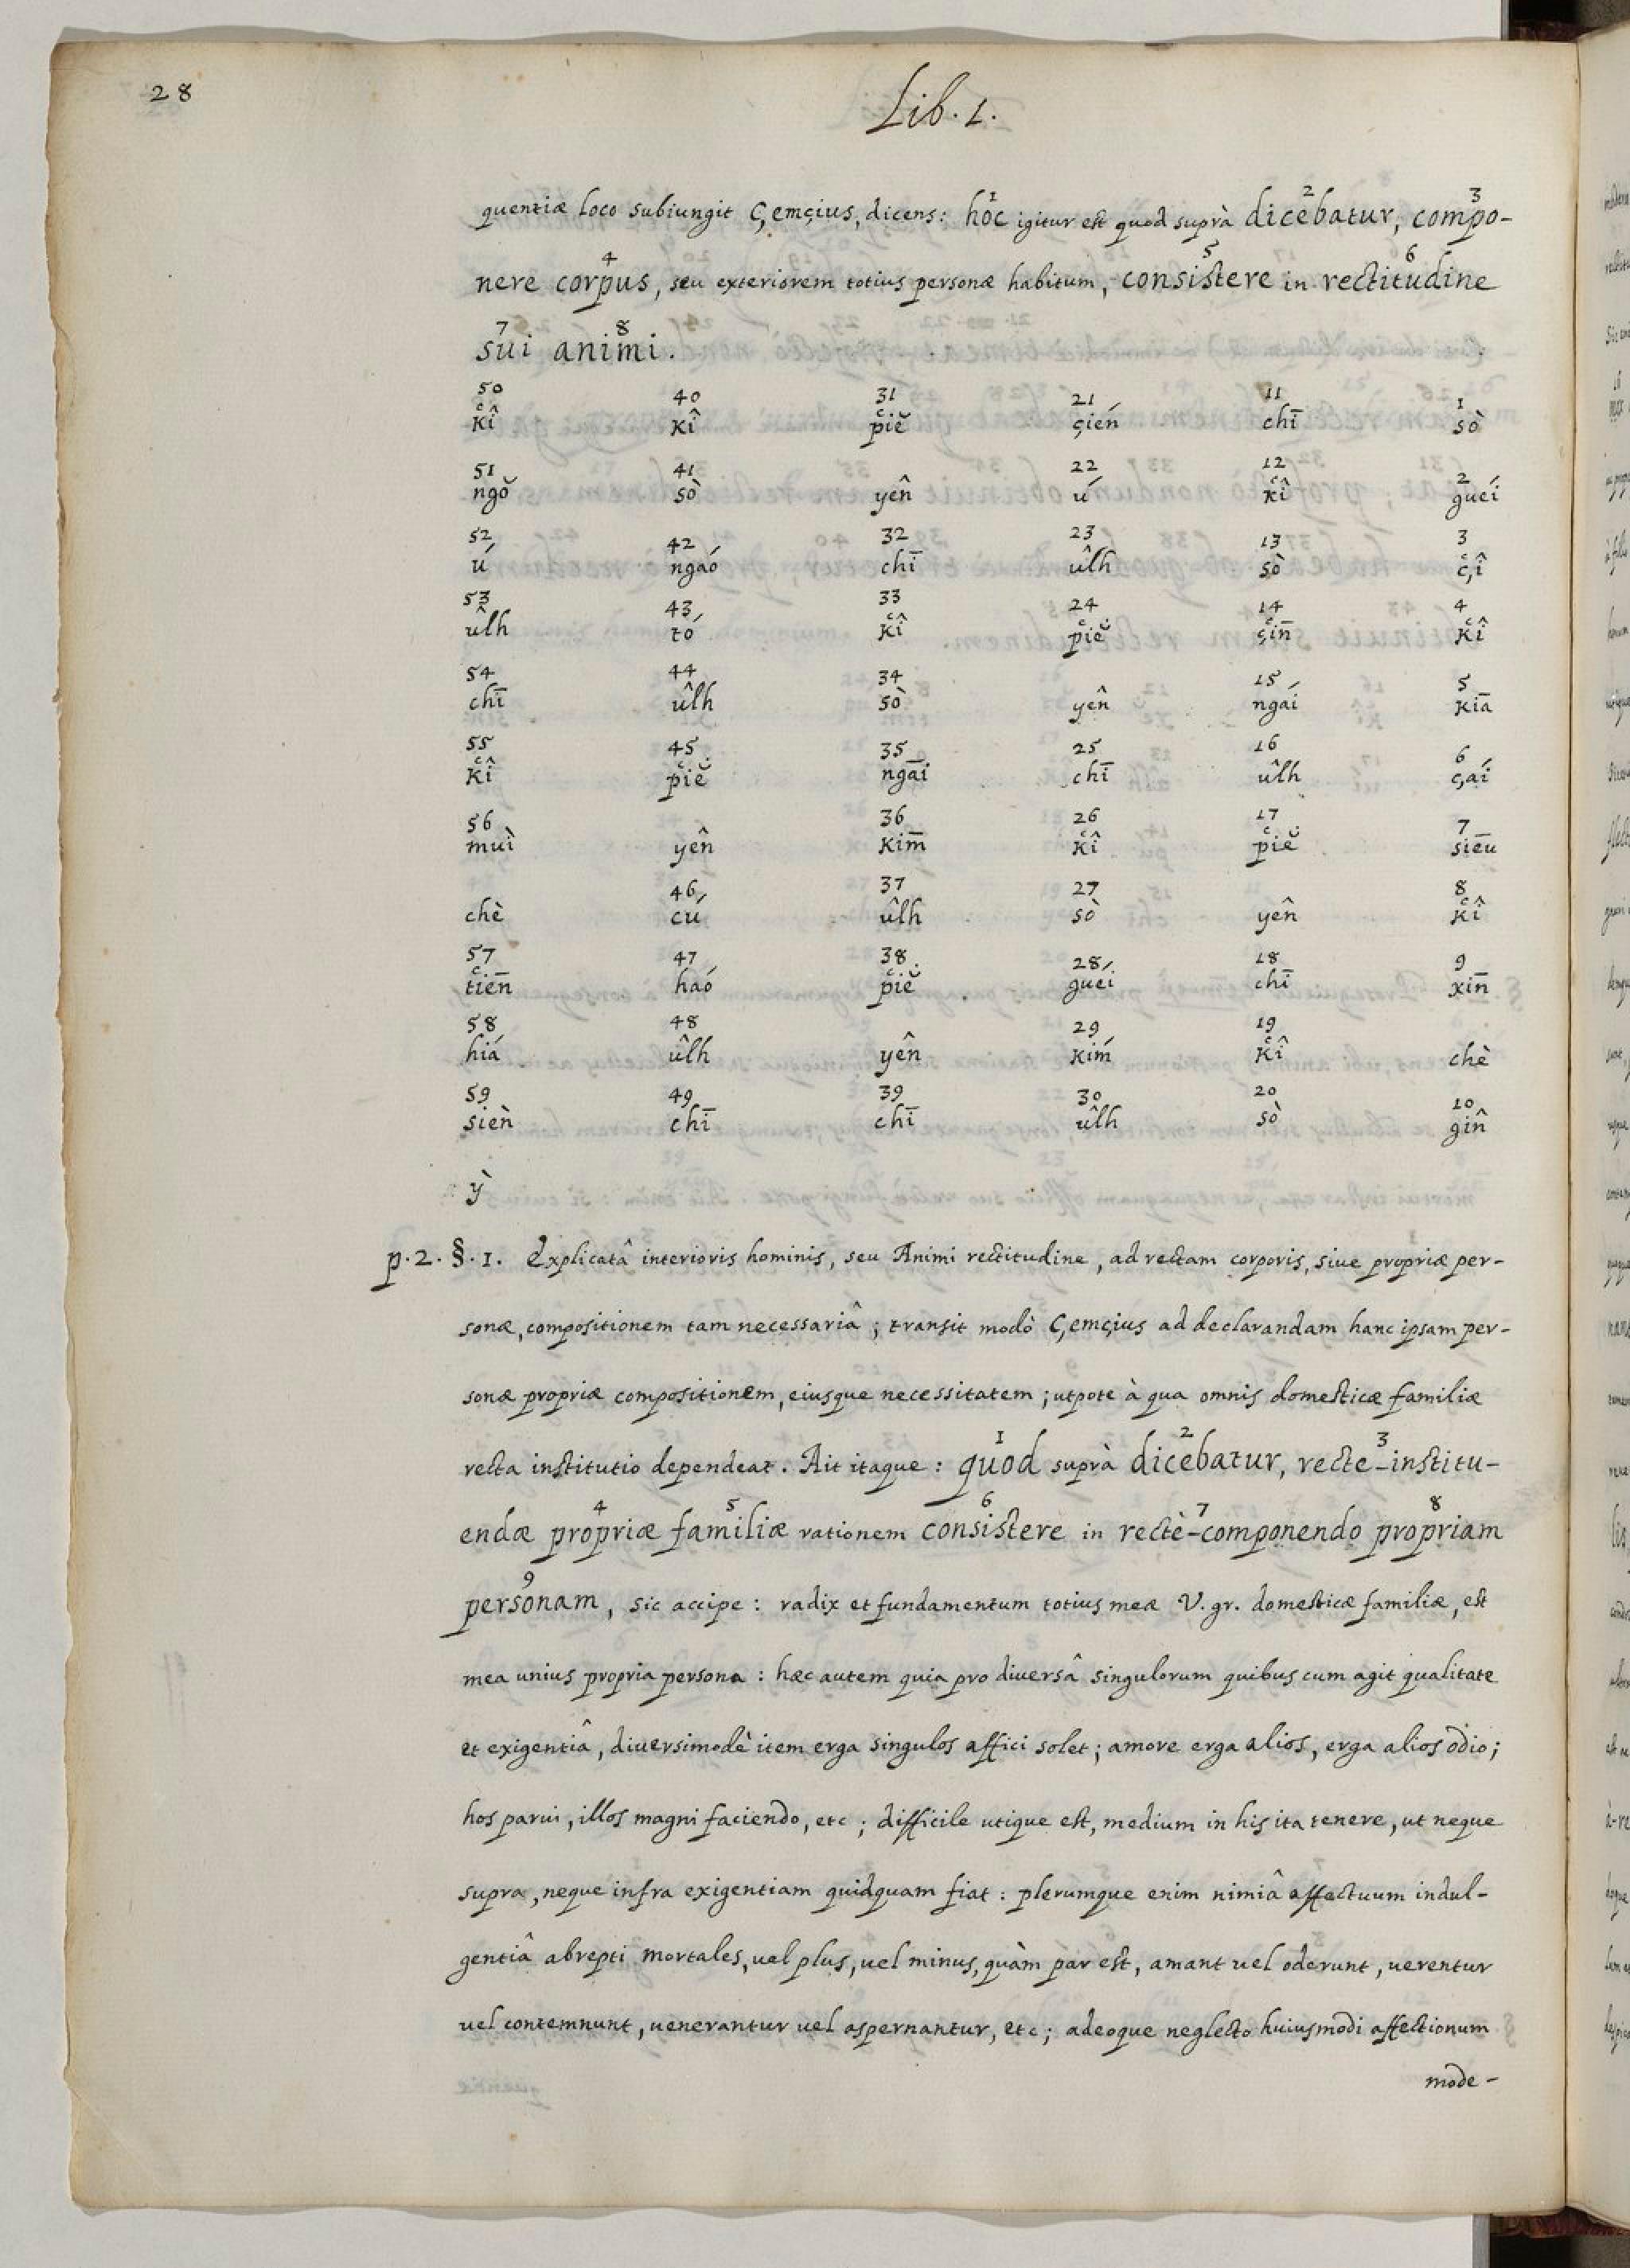 28
Lib. 1.
quentiæ loco subiungit Çemçius, dicens: hoc igitur est quod suprà dicebatur, compo-
1 2 3
nere corpus, seu exteriorem totius personæ habitum, consistere in rectitudine
4 5 6
sui animi.
7 8
50 40 31 21 11 1
kî kî piĕ çién chī sò
51 41 22 12 2
ngŏ sò yên ú kî guéi
52 42 32 23 13 3
ú ngáo chī ûlh sò çî
53 43 33 24 14 4
ûlh tó kî piĕ çīn kî
54 44 34 15 5
chī ûlh sò yên ngái kiā
55 45 35 25 16 6
kî piĕ ngāi chī ûlh çái
56 36 26 17 7
muì yên kīm kî piĕ siēu
46 37 27 8
chè cú ûlh sò yên kî
57 47 38 28 18 9
tiēn haó piĕ guéi chī xīn
58 48 29 19
hiá ûlh yên kím kî chè
59 49 39 30 20 10
sièn chī chī ûlh sò gîn
ỳ
p. 2. §. 1. Explicatâ interioris hominis, seu Animi rectitudine, ad rectam corporis, siue propriæ per-
sonæ, compositionem tam necessariâ; transit modò Çemçius ad declarandam hanc ipsam per-
sonæ propriæ compositionem, eiusque necessitatem; utpote à qua omnis domesticæ familiæ
recta institutio dependeat. Ait itaque: quod suprà dicebatur, recte-institu-
1 2 3
endæ propriæ familiæ rationem consistere in rectè-componendo propriam
4 5 6 7 8
personam, sic accipe: radix et fundamentum totius meæ V. gr. domesticæ familiæ, est
9
mea unius propria persona: hæc autem quia pro diversâ singulorum quibus cum agit qualitate
et exigentiâ, diuersimodè item erga singulos affici solet; amore erga alios, erga alios odio;
hos parui, illos magni faciendo, etc; difficile utique est, medium in his ita tenere, ut neque
supra, neque infra exigentiam quidquam fiat: plerumque enim nimiâ affectuum indul-
gentiâ abrepti mortales, uel plus, uel minus, quàm par est, amant uel oderunt, uerentur
uel contemnunt, uenerantur uel aspernantur, etc; adeoque neglecto huiusmodi affectionum
mode-